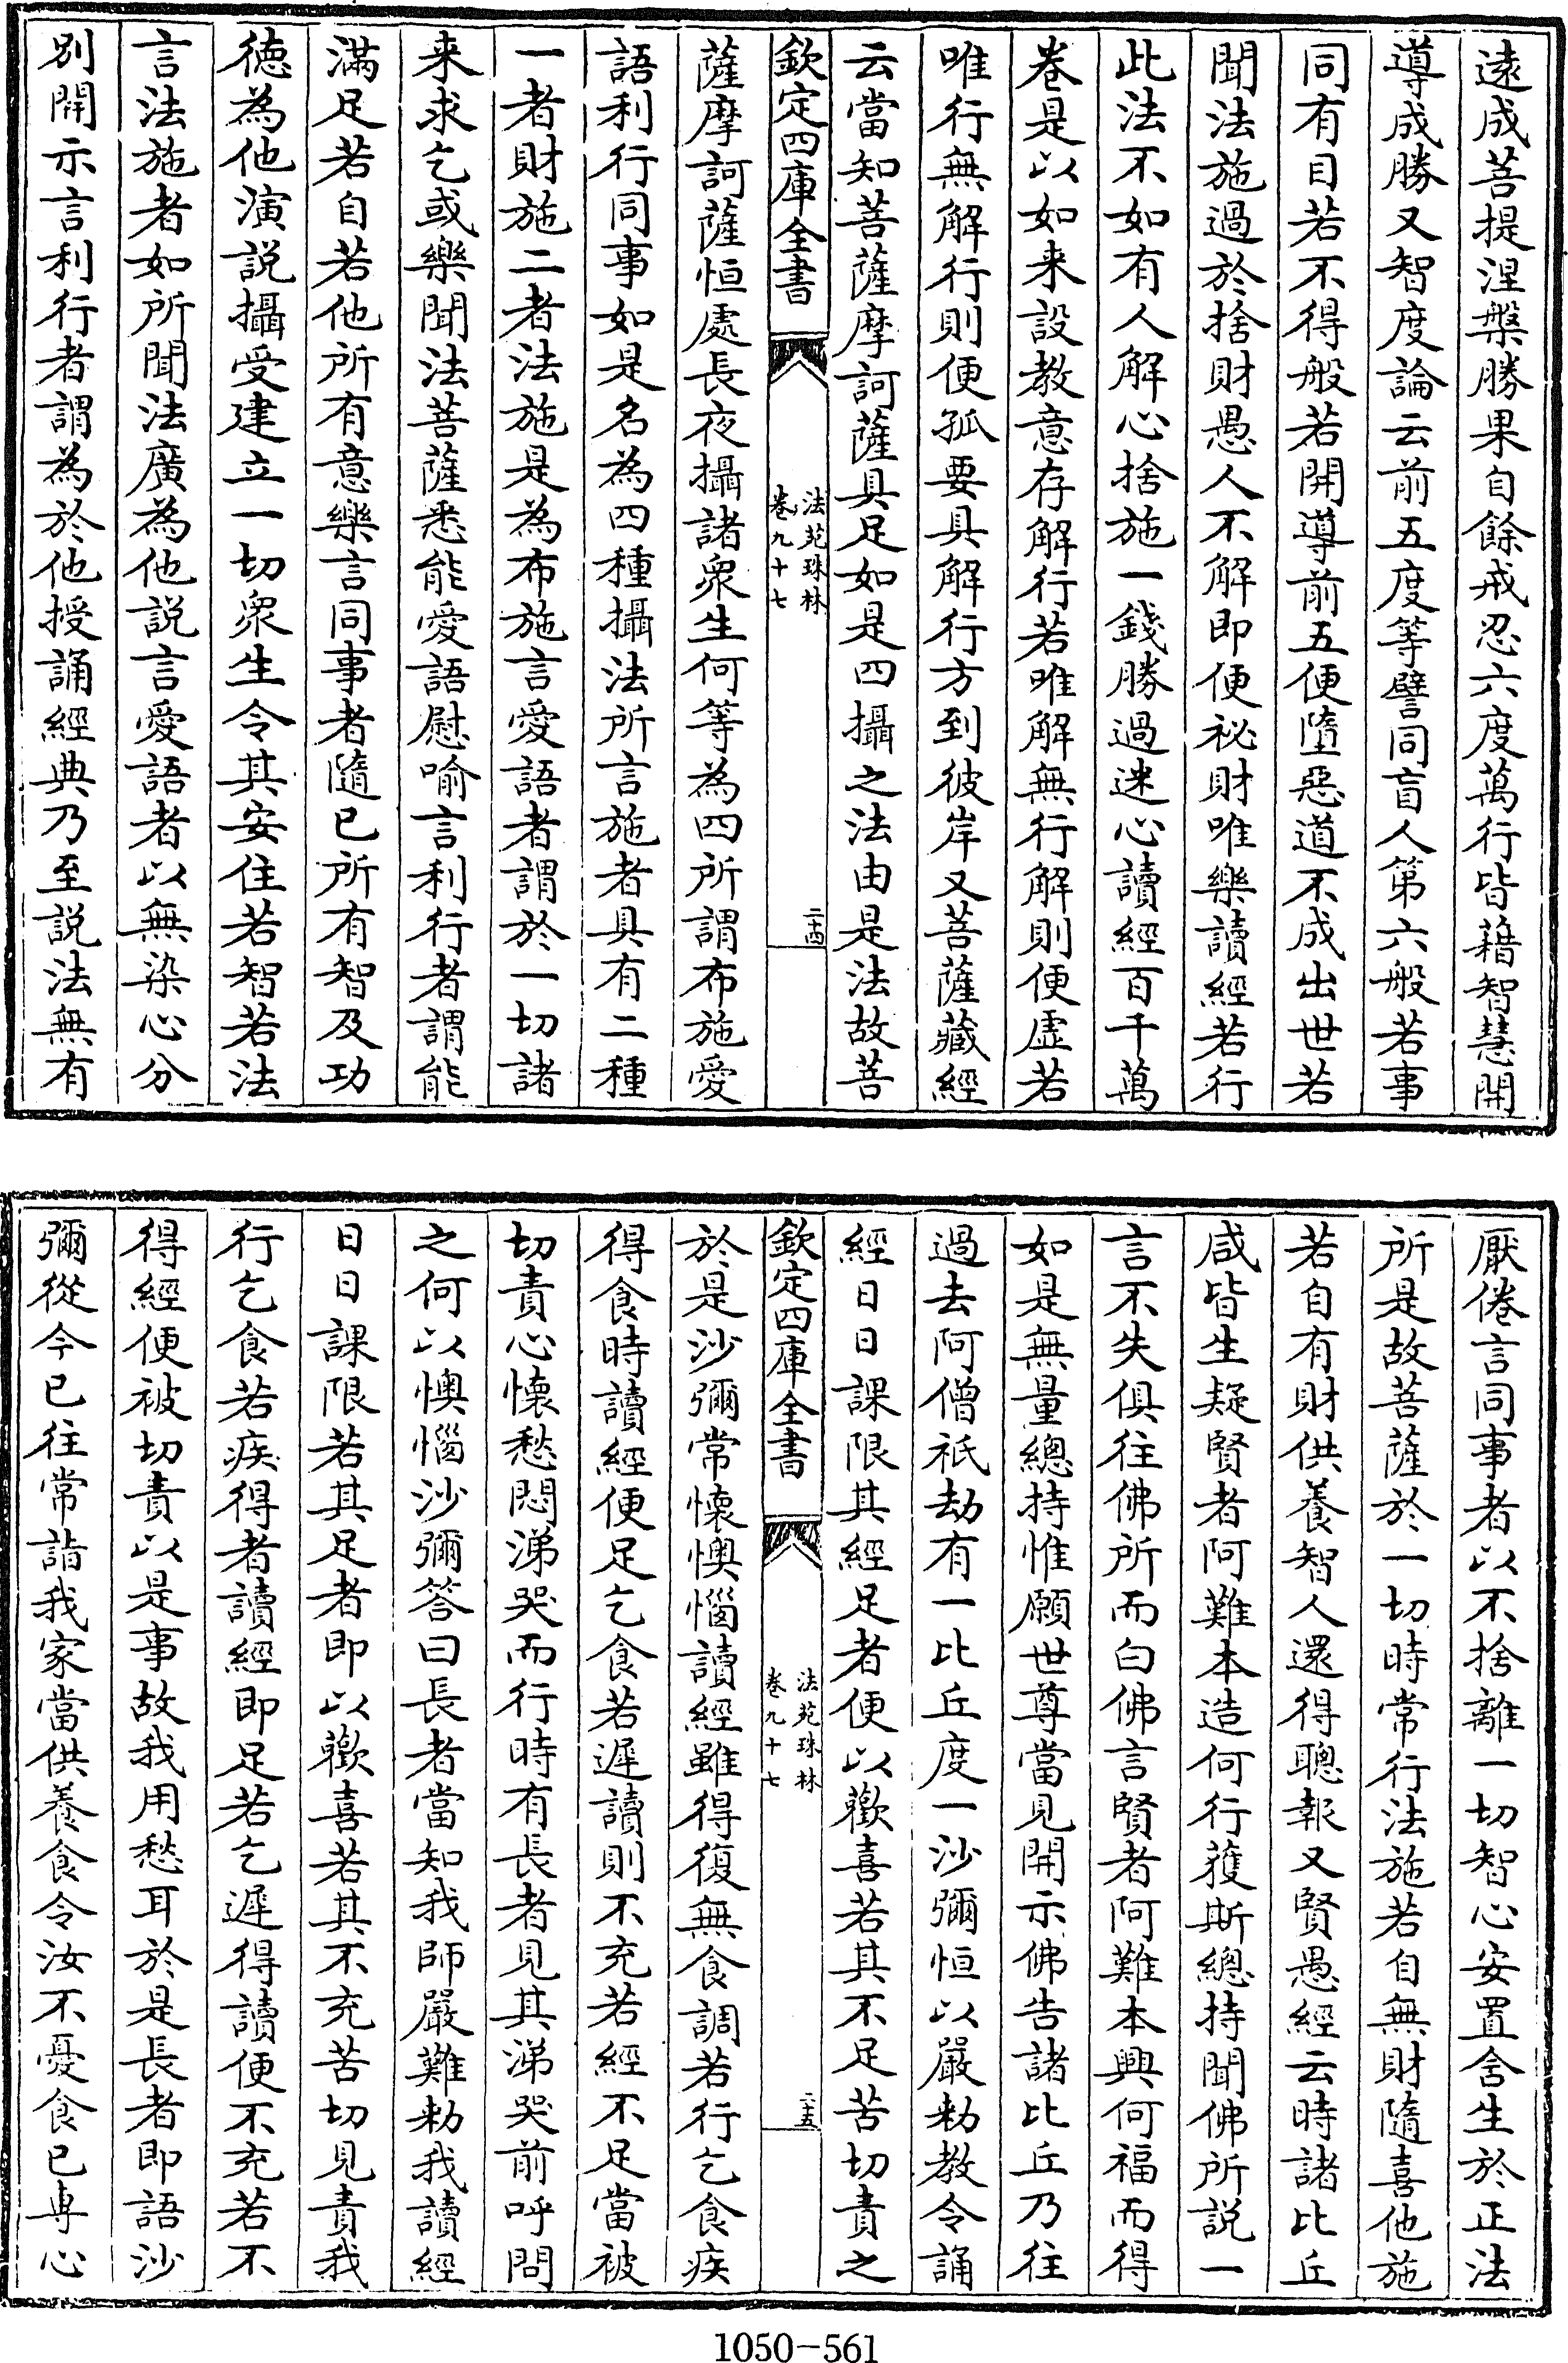 遠成菩提涅槃勝果自餘戒忍六度萬行皆藉智慧開
導成勝又智度論云前五度等譬同盲人第六般若事
同有目若不得般若開導前五便墮惡道不成出世若
聞法施過於捨財愚人不解即便祕財唯樂讀經若行
此法不如有人解心捨施一錢勝過迷心讀經百千萬
卷是以如来設教意存解行若唯解無行解則便虛若
唯行無解行則便孤要具解行方到彼岸又菩薩藏經
云當知菩薩摩訶薩具足如是四攝之法由是法故菩
欽定四庫全書
法苑珠林
卷九十七
二十四
薩摩訶薩恒處長夜攝諸衆生何等為四所謂布施愛
語利行同事如是名為四種攝法所言施者具有二種
一者財施二者法施是為布施言愛語者謂於一切諸
来求乞或樂聞法菩薩悉能愛語慰喻言利行者謂能
滿足若自若他所有意樂言同事者隨已所有智及功
德為他演説攝受建立一切衆生令其安住若智若法
言法施者如所聞法廣為他説言愛語者以無染心分
別開示言利行者謂為於他授誦經典乃至説法無有
厭倦言同事者以不捨離一切智心安置含生於正法
所是故菩薩於一切時常行法施若自無財隨喜他施
若自有財供養智人還得聰報又賢愚經云時諸比丘
咸皆生疑賢者阿難本造何行獲斯總持聞佛所説一
言不失俱往佛所而白佛言賢者阿難本興何福而得
如是無量總持惟願世尊當見開示佛告諸比丘乃往
過去阿僧祇劫有一比丘度一沙彌恒以嚴勅教令誦
經日日課限其經足者便以歡喜若其不足苦切責之
欽定四庫全書
法苑珠林
卷九十七
二十五
於是沙彌常懷懊惱讀經雖得復無食調若行乞食疾
得食時讀經便足乞食若遲讀則不充若經不足當被
切責心懷愁悶涕哭而行時有長者見其涕哭前呼問
之何以懊惱沙彌答曰長者當知我師嚴難勅我讀經
日日課限若其足者即以歡喜若其不充苦切見責我
行乞食若疾得者讀經即足若乞遲得讀便不充若不
得經便被切責以是事故我用愁耳於是長者即語沙
彌從今已往常詣我家當供養食令汝不憂食已専心
1050-561